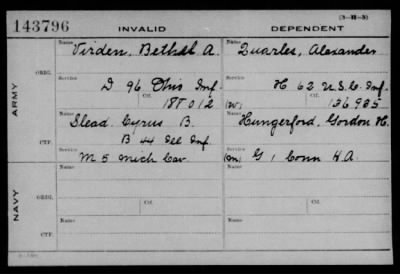 (3-H-5)
143796 INVALID DEPENDENT
Name Virden, Bethel A. Name Quarles, Alexander
ORIG. Service D 96 Ohio Inf. Service H 62 U.S.C. Inf.
Ctf. 187012 (W) Ctf. 136985
ARMY
Name Slead, Cyrus B. Name Hungerford, Gordon H.
CTF. B 44 Ill Inf.
Service M 5 Mich Cav. (M) Service G 1 Conn H.A.
NAVY
Name Name
ORIG. Ctf. Ctf.
CTF. Name Name